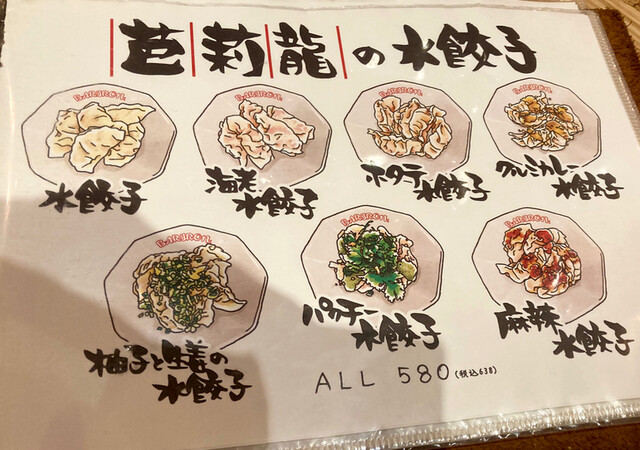 芭莉龍の水餃子
BARIRON
BARIRON
BARIRON
BARIRON
水餃子
海老水餃子
ホタテ水餃子
クルミカレー水餃子
BARIRON
BARIRON
BARIRON
柚子と生姜の水餃子
パクチー水餃子
麻辣水餃子
ALL 580(税込638)